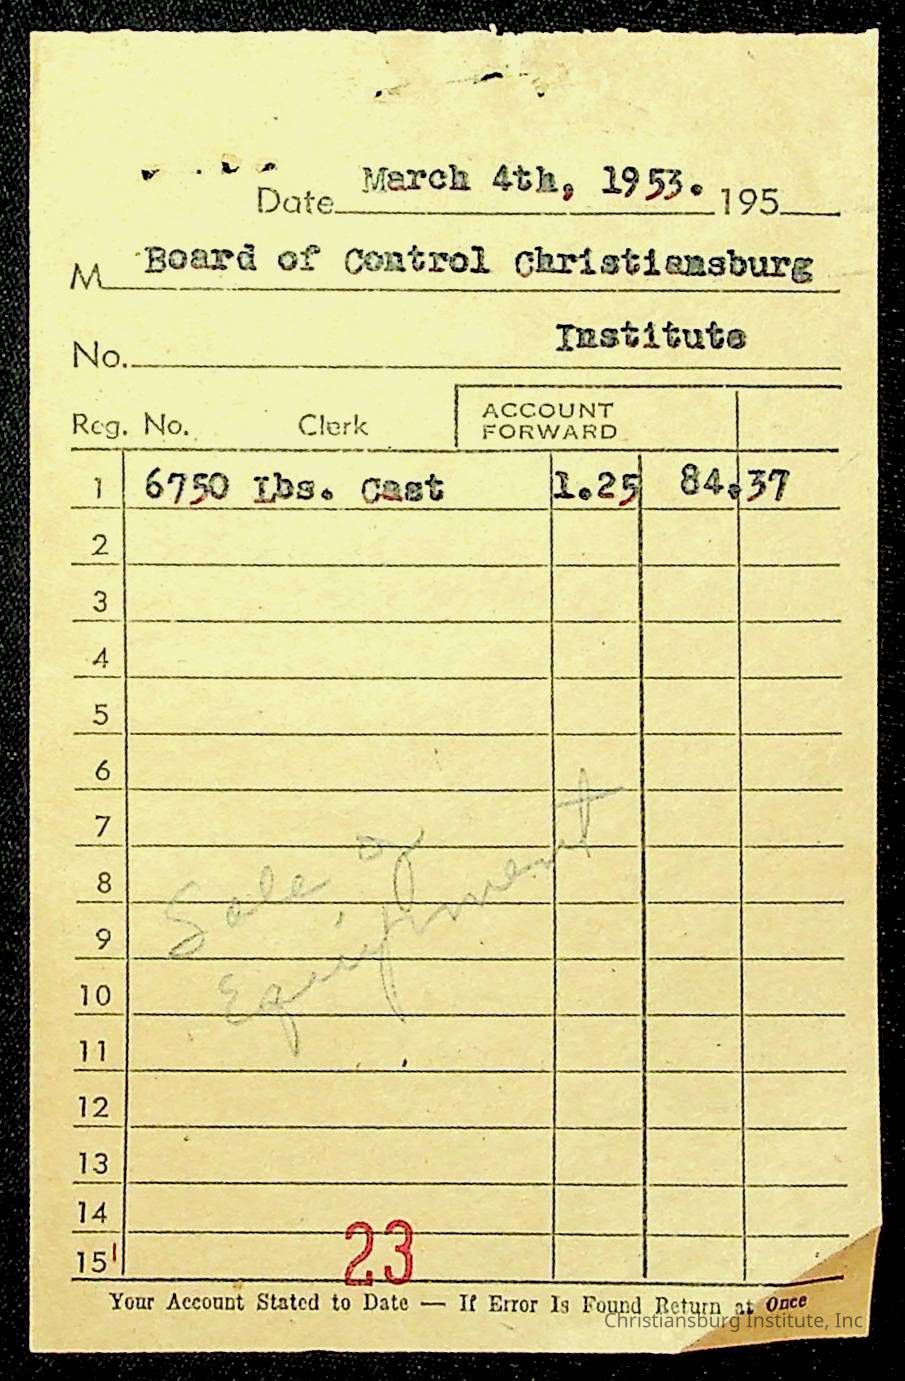 March 4th, 1953.
Date 195
M Board of Control Christiansburg
Institute
No.
Reg. No. Clerk ACCOUNT FORWARD
1 6750 Lbs. Cast 1.25 84.37
2
3
4
5
6
7
8
9
10
11
12
13
14
15
Sale of
Equipment
23
Your Account Stated to Date — If Error Is Found Return at Once
Christiansburg Institute, Inc